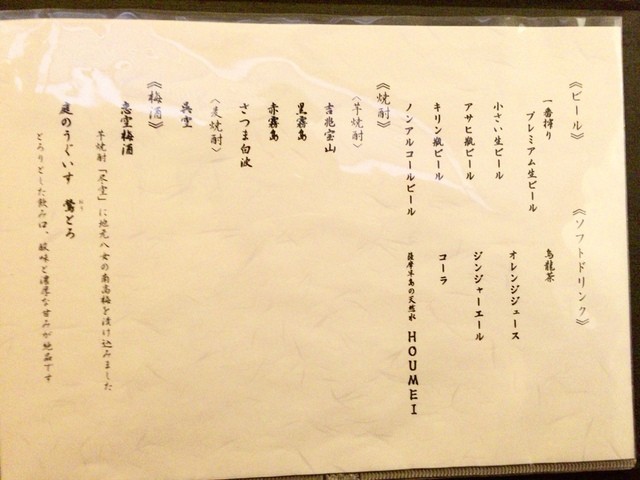 《ビール》
一番搾り
プレミアム生ビール
小さい生ビール
アサヒ瓶ビール
キリン瓶ビール
ノンアルコールビール
《ソフトドリンク》
烏龍茶
オレンジジュース
ジンジャーエール
コーラ
薩摩半島の天然水 HOUMEI
《焼酎》
〈芋焼酎〉
吉兆宝山
黒霧島
赤霧島
さつま白波
〈麦焼酎〉
呉空
《梅酒》
尽空梅酒
芋焼酎「尽空」に地元八女の南高梅を漬け込みました
庭のうぐいす 鶯とろ
とろりとした飲み口、酸味と濃厚な甘みが絶品です